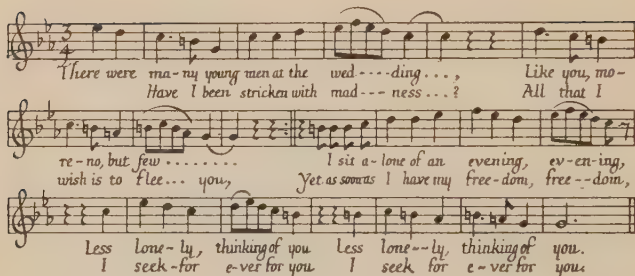 There were ma-ny young men at the wed----ding...,   Like you, mo-
Have I been stricken with mad---ness...?   All that I
re-no, but few .........   I sit a-lone of an evening, ev-en-ing,
wish is to flee... you,   Yet as soon as I have my free-dom, free--dom,
Less lone-ly, thinking of you   Less lone--ly, thinking of you.
I seek-for e-ver for you   I seek for e-ver for you.